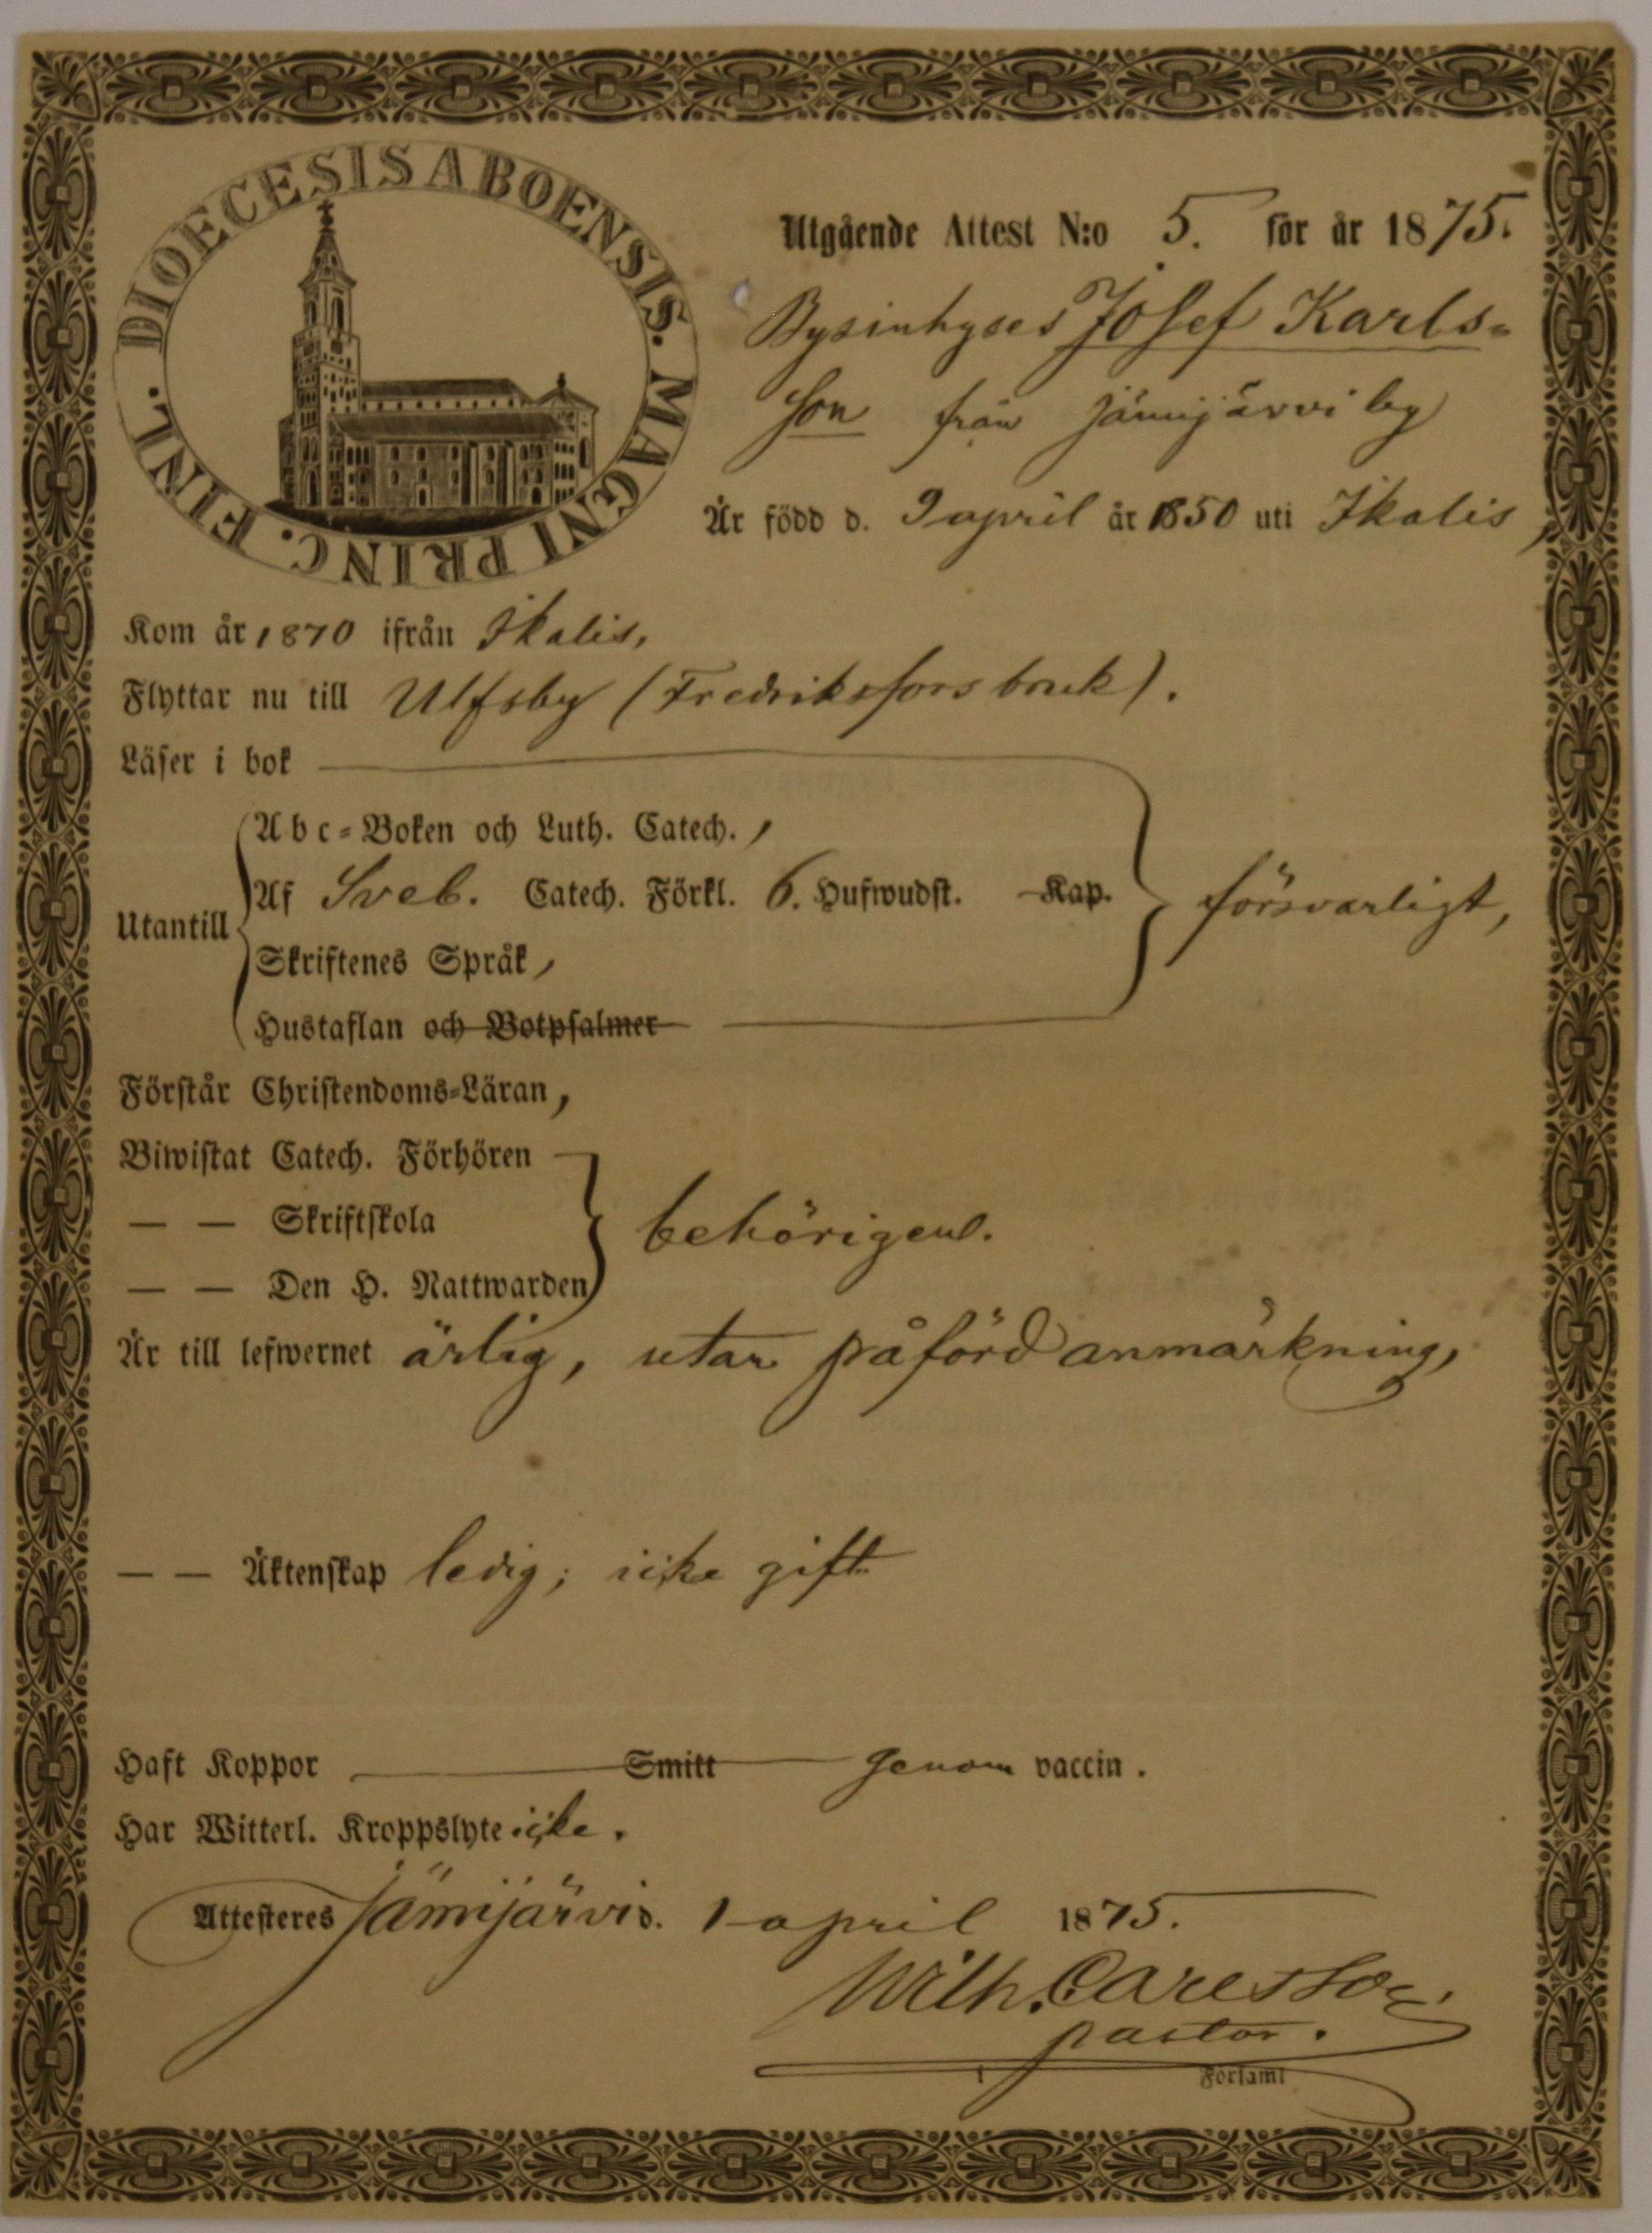 DIOECESIS ABOENSIS. MAGNI PRINC. FINL.
Utgående Attest N:o 5. för år 1875.
Bysinhyses Josef Karls=
son från Jämijärvi by
Är född d. 9 april år 1850 uti Ikalis,
Kom år 1870 ifrån Ikalis,
Flyttar nu till Ulfsby (Fredriksfors bruk).
Läser i bok
Abc=Boken och Luth. Catech.,
Af Sveb. Catech. Förkl. 6. Hufwudst. Kap.
försvarligt,
Utantill
Skriftenes Språk,
Hustaflan och Botpsalmer
Förstår Christendoms=Läran,
Biwistat Catech. Förhören
— — Skriftskola
behörigen.
— — Den H. Nattwarden
Är till lefwernet ärlig, utan påförd anmärkning,
— — Äktenskap ledig; icke gift
Haft Koppor Smitt genom vaccin.
Har Witterl. Kroppslyte icke.
Attesteres Jämijärvi d. 1 april 1875.
Wilh.
pastor.
i Församl